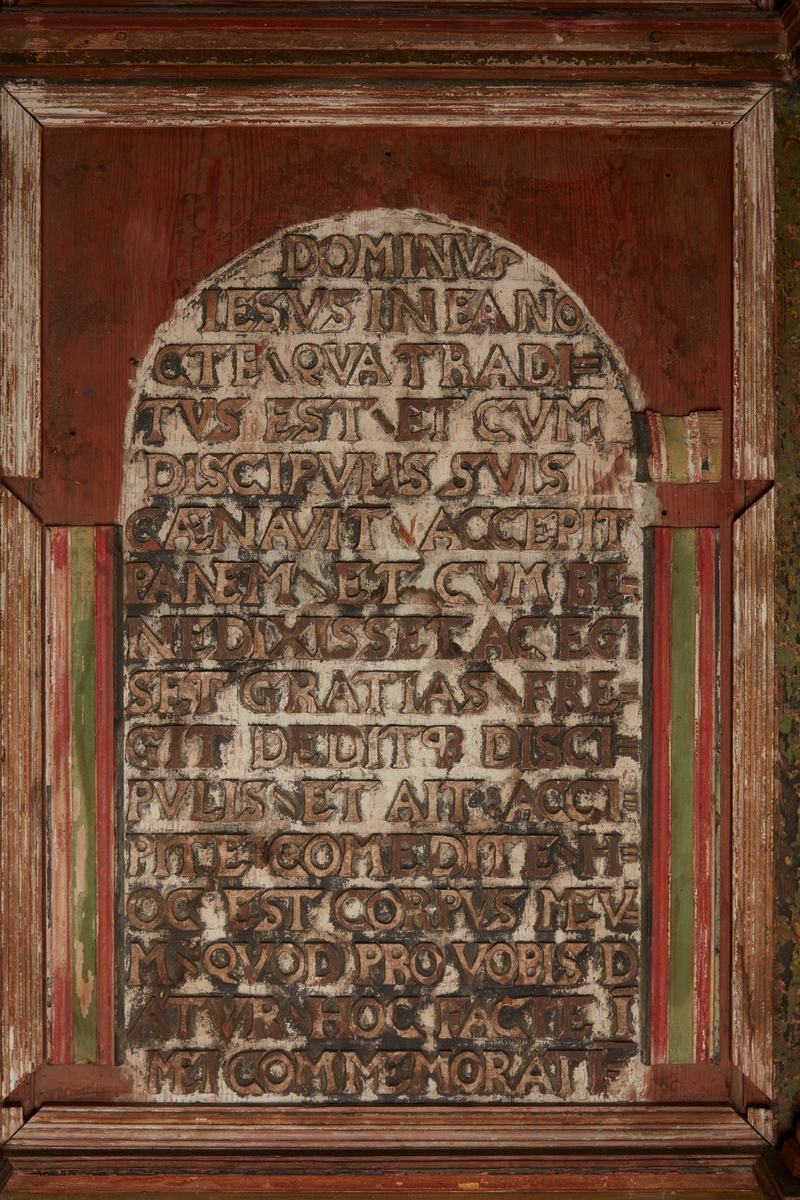 DOMINVS
IESVS IN EA NO
CTE\QVA TRADI=
TVS EST\ET CVM
DISCIPVLIS SVIS
CÆNAVIT\ACCEPIT
PANEM\ET CVM BE=
NEDIXISSET AC EGI
SET GRATIAS\FRE=
GIT DEDITQꝫ DISCI=
PVLIS\ET AIT:ACCI=
PITE COMEDITE\H=
OC EST CORPVS MEV=
M\QVOD PRO VOBIS D
ATVR\HOC FACTE Ī
MEI COMMEMORATI=